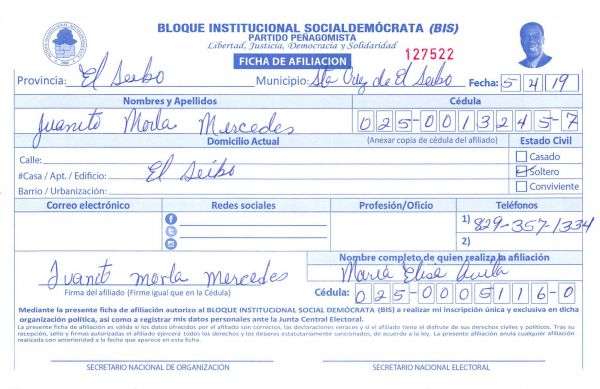 BLOQUE INSTITUCIONAL SOCIALDEMÓCRATA (BIS)
PARTIDO PEÑAGOMISTA
Libertad, Justicia, Democracia y Solidaridad
127522
FICHA DE AFILIACION
Provincia: El Seibo Municipio: Sta Cruz de El Seibo Fecha: 5 4 19
Nombres y Apellidos Cédula
Juanito Morla Mercedes 025-0013245-7
Domicilio Actual (Anexar copia de cédula del afiliado) Estado Civil
Calle: Casado
#Casa / Apt. / Edificio: El Seibo Soltero
Barrio / Urbanización: Conviviente
Correo electrónico Redes sociales Profesión/Oficio Teléfonos
1) 829-357-1334
2)
Nombre completo de quien realiza la afiliación
Juanito morla mercedes Maria Elisa Avila
Firma del afiliado (Firme igual que en la Cédula) Cédula: 025-0005116-0
Mediante la presente ficha de afiliación autorizo al BLOQUE INSTITUCIONAL SOCIAL DEMÓCRATA (BIS) a realizar mi inscripción única y exclusiva en dicha
organización política, así como a registrar mis datos personales ante la Junta Central Electoral.
La presente ficha de afiliación es válida si los datos ofrecidos por el afiliado son correctos, las declaraciones veraces y si el afiliado tiene el disfrute de sus derechos civiles y políticos. Tras su
recepción, sello y firmas autorizadas el afiliado ejercerá todos los derechos y los deberes estatutariamente sancionados, de acuerdo a la ley. La presente afiliación anula cualquier afiliación
realizada con anterioridad a la fecha que aparece en esta ficha.
SECRETARIO NACIONAL DE ORGANIZACIÓN SECRETARIO NACIONAL ELECTORAL